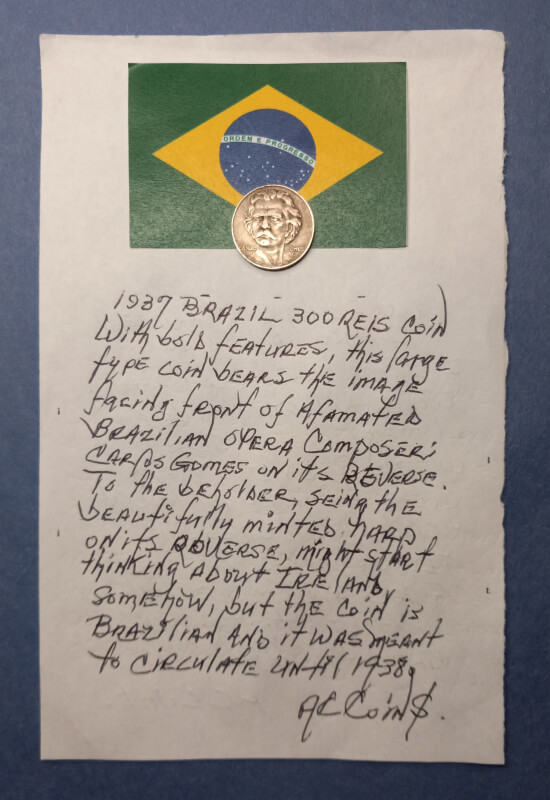 ORDEM E PROGRESSO
1937 BRAZIL 300 REIS COIN
With bold FEATURES, this large
type coin bears the image
facing front of A famated
BRAZILIAN OPERA COMPOSER:
CARLOS GOMES on its REVERSE.
To the beholder, seing the
beautifully minted harp
on its ADVERSE, might start
thinking About IRELAND,
somehow, but the coin is
BRAZILIAN And it was meant
to circulate until 1938.
AC Coin$.